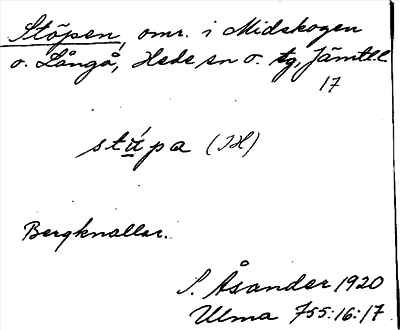 Stöpen, omr. i Midskogen
o. Långå, Hede sn o. tg, Jämtl.
17
stú̲pa (IH)
Bergknallar.
S. Åsander 1920
Ulma 755:16:17